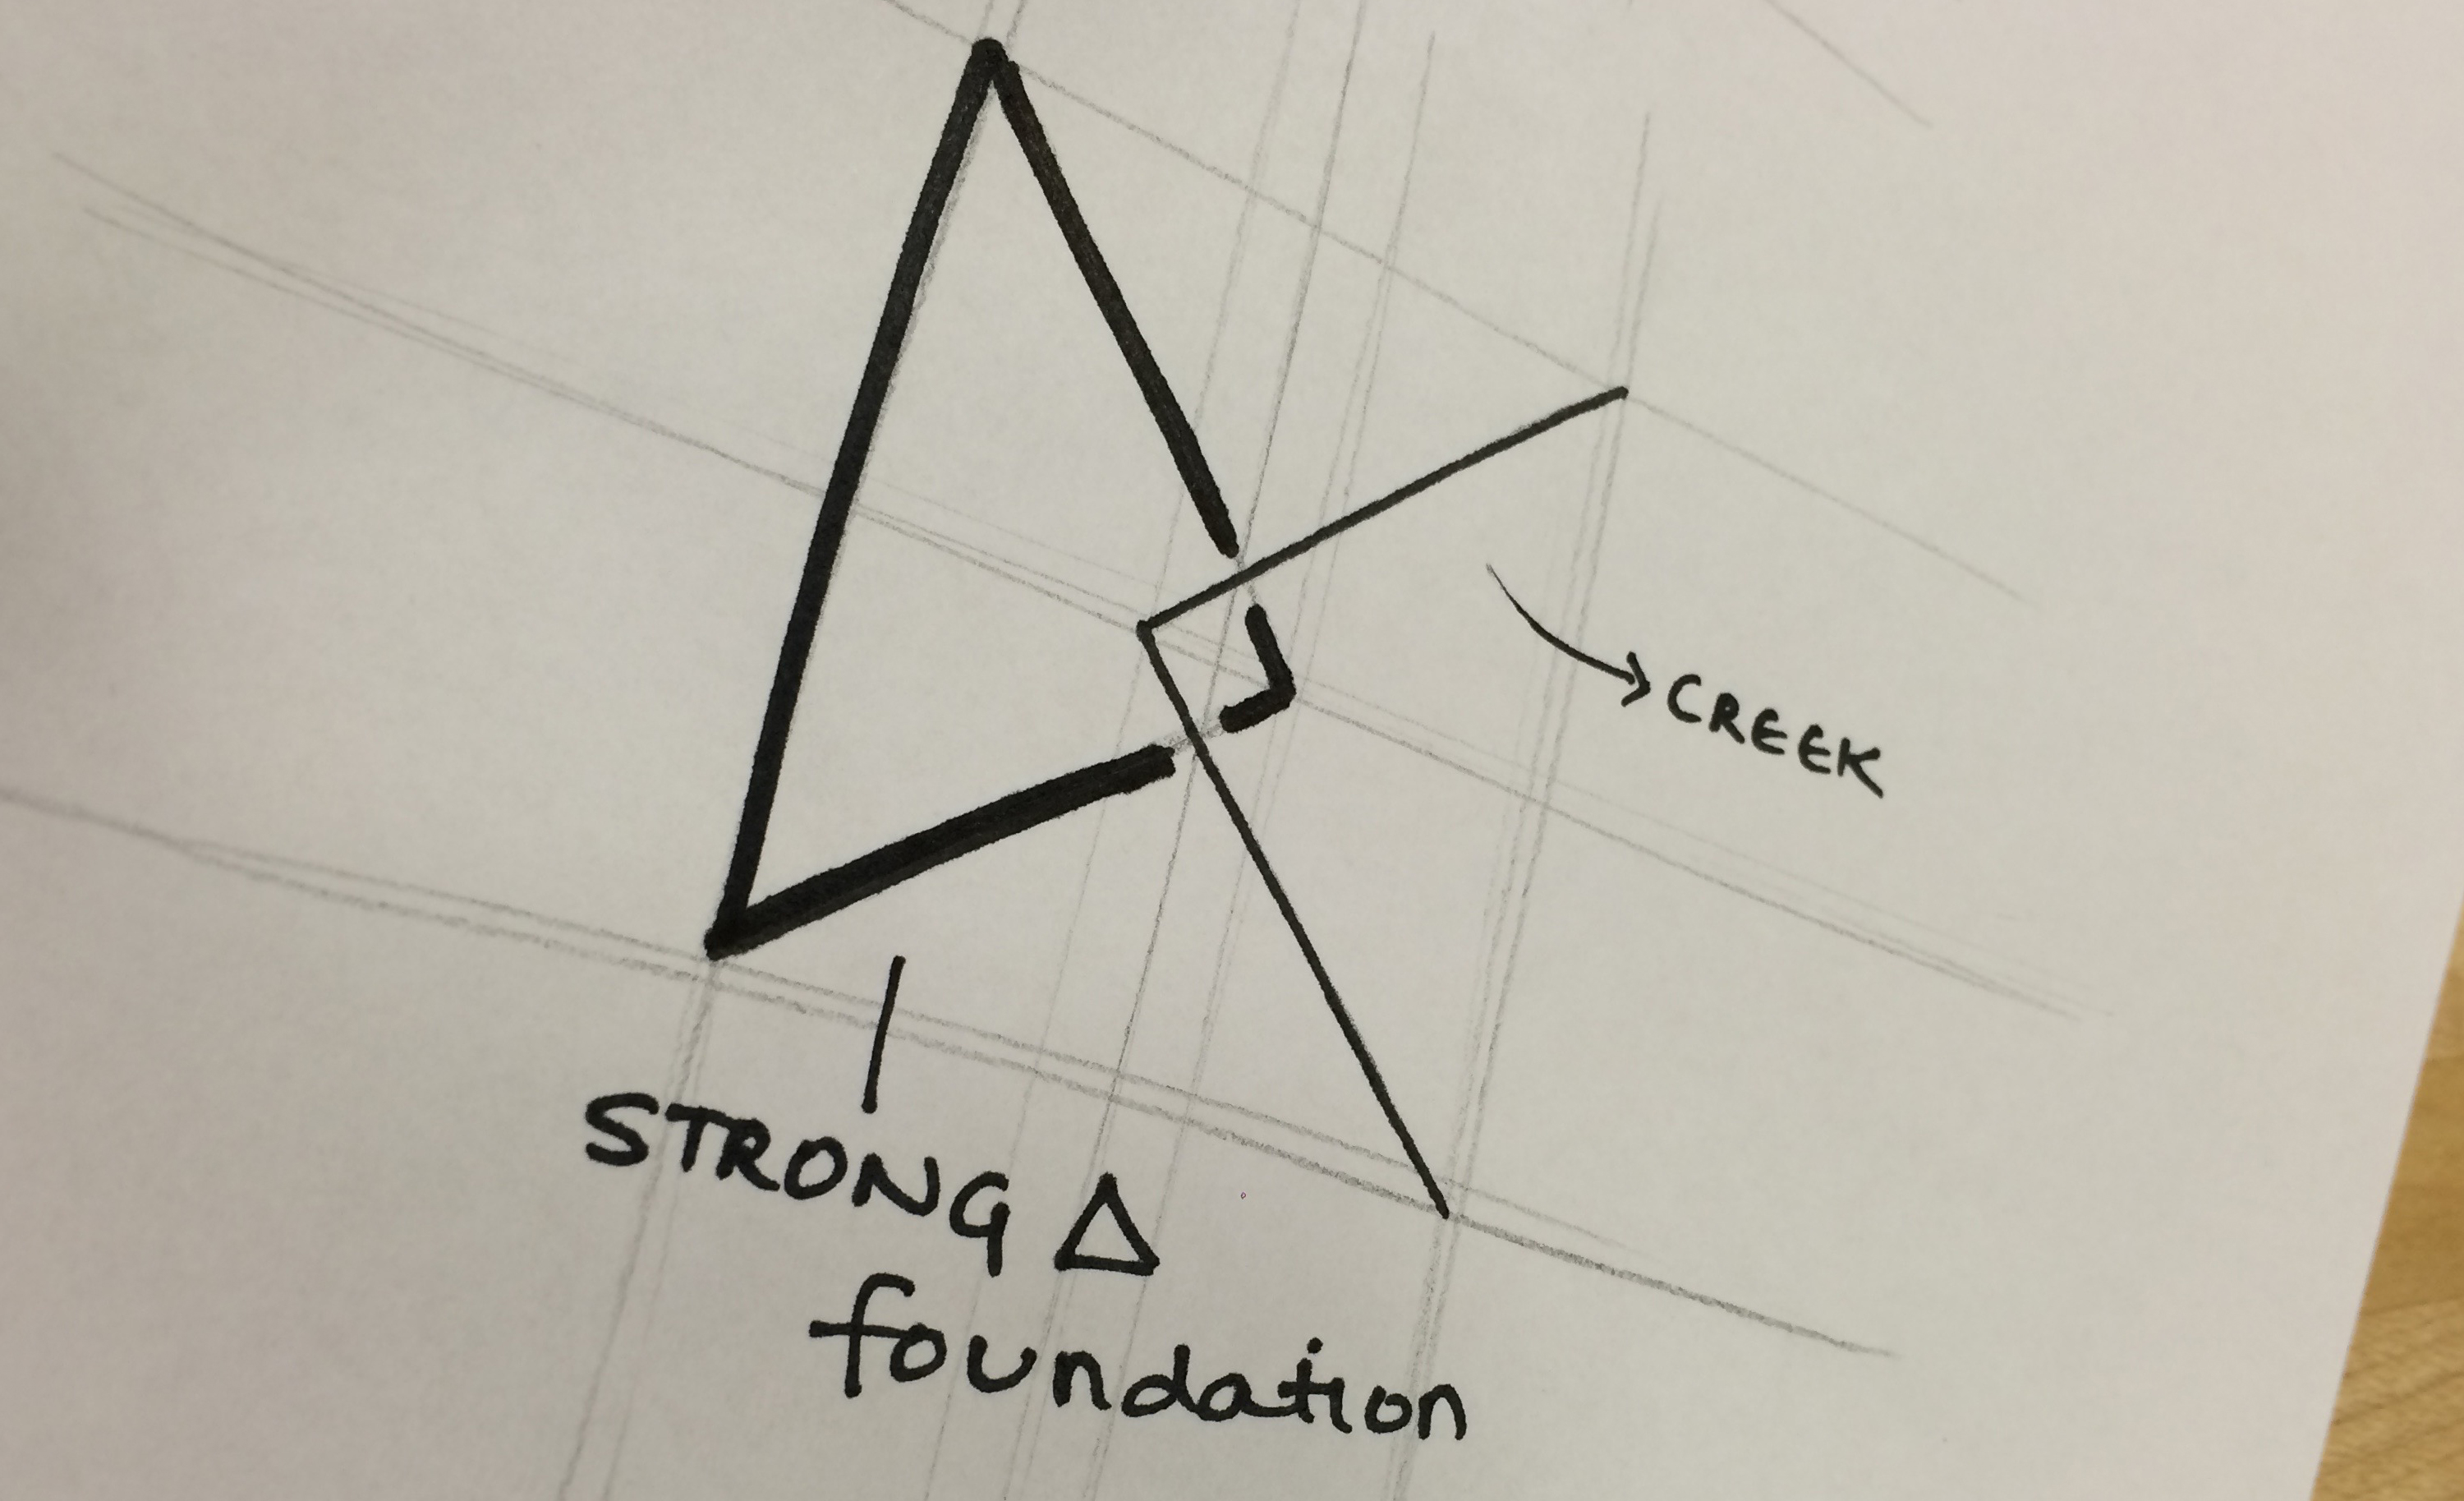 CREEK
STRONG Δ
foundation